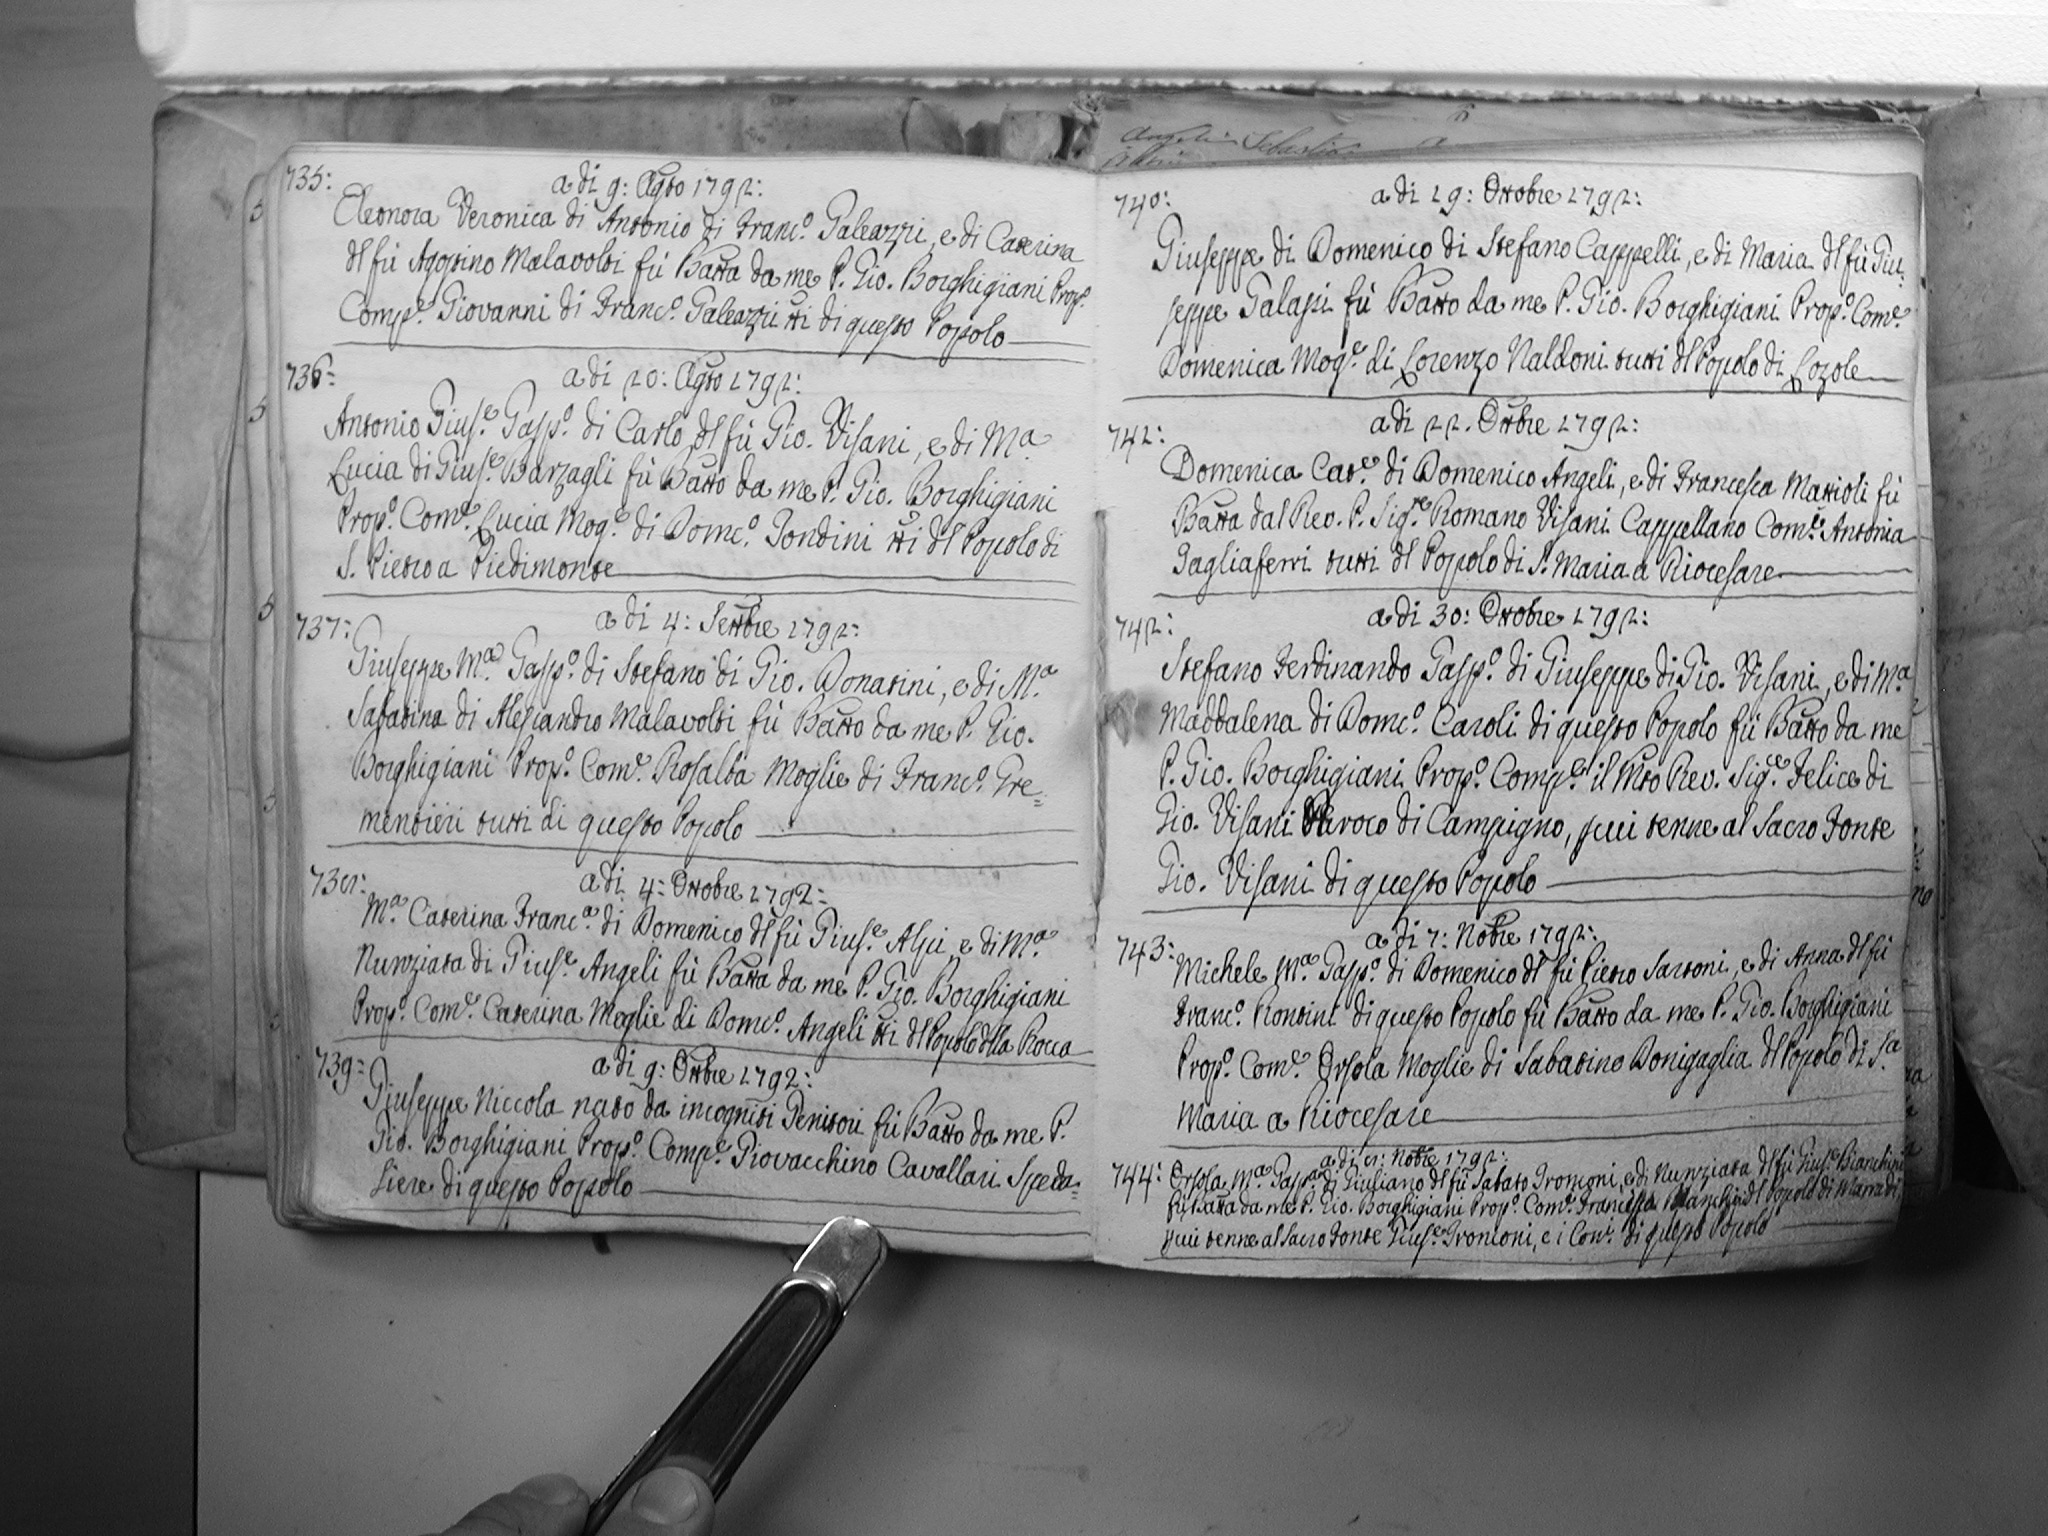 735: a di 9: Agto 1792:
Eleonora Veronica di Antonio di Franc.o Galeazzi, e di Caterina
dl fù Agostino Malavolti fù Batta da me P. Gio. Borghigiani Prop.o
Comp.e Giovanni di Franc.o Galeazzi tti di questo Popolo
736: a di 20: Agto 1792:
Antonio Gius.e Gasp.o di Carlo dl fù Gio. Visani, e di M.a
Lucia di Gius.e Barzagli fù Batto da me P. Gio. Borghigiani
Prop.o Com.e Lucia Mog.e di Dom.co Fondini tti dl Popolo di
S. Pietro a Piedimonte
737: a di 4: Settbre 1792:
Giuseppe M.a Gasp.o di Stefano di Gio. Donatini, e di M.a
Sabatina di Alessandro Malavolti fù Batto da me P. Gio.
Borghigiani Prop.o Com.e Rosalba Moglie di Franc.o Tre=
mentieri tutti di questo Popolo
738: a di 4: Ottobre 1792:
M.a Caterina Franc.a di Domenico dl fù Gius.e Alpi, e di M.a
Nunziata di Gius.e Angeli fù Batta da me P. Gio. Borghigiani
Prop.o Com.e Caterina Moglie di Dom.co Angeli tti dl Popolo dlla Rocca
739: a di 9: Ottbre 1792:
Giuseppe Niccola nato da incogniti Genitori fù Batto da me P.
Gio. Borghigiani Prop.o Comp.e Giovacchino Cavallari Speda=
liere di questo Popolo
740: a di 19: Ottobre 1792:
Giuseppe di Domenico di Stefano Cappelli, e di Maria dl fù Giu=
seppe Galassi fù Batto da me P. Gio. Borghigiani Prop.o Com.e
Domenica Mog.e di Lorenzo Naldoni tutti dl Popolo di Lozole
741: a di 22. Ottbre 1792:
Domenica Cat.e di Domenico Angeli, e di Francesca Mattioli fù
Batta dal Rev. P. Sig.re Romano Visani Cappellano Com.e Antonia
Tagliaferri tutti dl Popolo di S. Maria a Riocesare
742: a di 30: Ottobre 1792:
Stefano Ferdinando Gasp.o di Giuseppe di Gio. Visani, e di M.a
Maddalena di Dom.co Caroli di questo Popolo fù Batto da me
P. Gio. Borghigiani Prop.o Comp.e il Mto Rev. Sig.e Felice di
Gio. Visani Paroco di Campigno, p lui tenne al Sacro Fonte
Gio. Visani di questo Popolo
743: a di 7: Nobre 1792:
Michele M.a Gasp.o di Domenico dl fù Pietro Sartoni, e di Anna dl fù
Franc.o Rontini di questo Popolo fù Batto da me P. Gio. Borghigiani
Prop.o Com.e Orsola Moglie di Sabatino Donigaglia dl Popolo di S.a
Maria a Riocesare
744: a di 8: Nobre 1792:
Orsola M.a Gasp.a di Giuliano dl fù Sabato Tronconi, e di Nunziata dl fù Gius.e Bianchini
fù Batta da me P. Gio. Borghigiani Prop.o Com.e Francesca Bianchini dl Popolo di Marradi
p lui tenne al Sacro Fonte Gius.e Tronconi, e i Con.i di questo Popolo